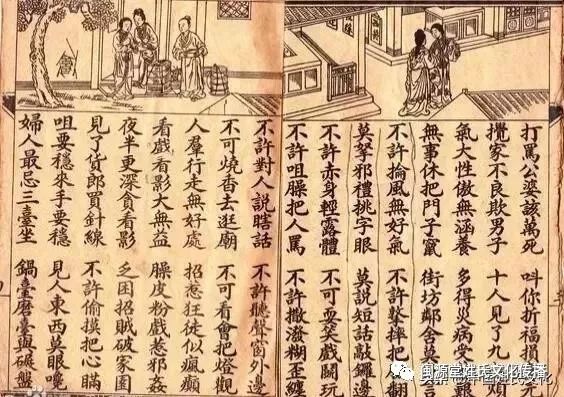 打罵公婆該萬死 呌你折福損元
攪家不良欺男子 十人見了九煩
氣大性傲無涵養 多得災病受艱
無事休把門子竄 街坊鄰舍莫言
不許掄風無好氣 不許摔把翻
莫拏邪禮挑字眼 莫說短話敲鑼邊
不許赤身輕露體 不可耍笑戲鬧玩
不許咀臊把人罵 不許撒潑糊歪纏
不許對人說瞎話 不許聽聲窗外邊
不可燒香去逛廟 不可看會把燈觀
人羣行走無好處 招惹狂徒似瘋癲
看戲看影大無益 臊皮粉戲惹邪姦
夜半更深貪看影 乏困招賊破家園
見了貨郎買針線 不許偷摸把心瞞
咀要穩來手要穩 見人東西莫眼嚵
婦人最忌三臺坐 鍋臺磨臺與碾盤
闽源堂姓氏文化传播